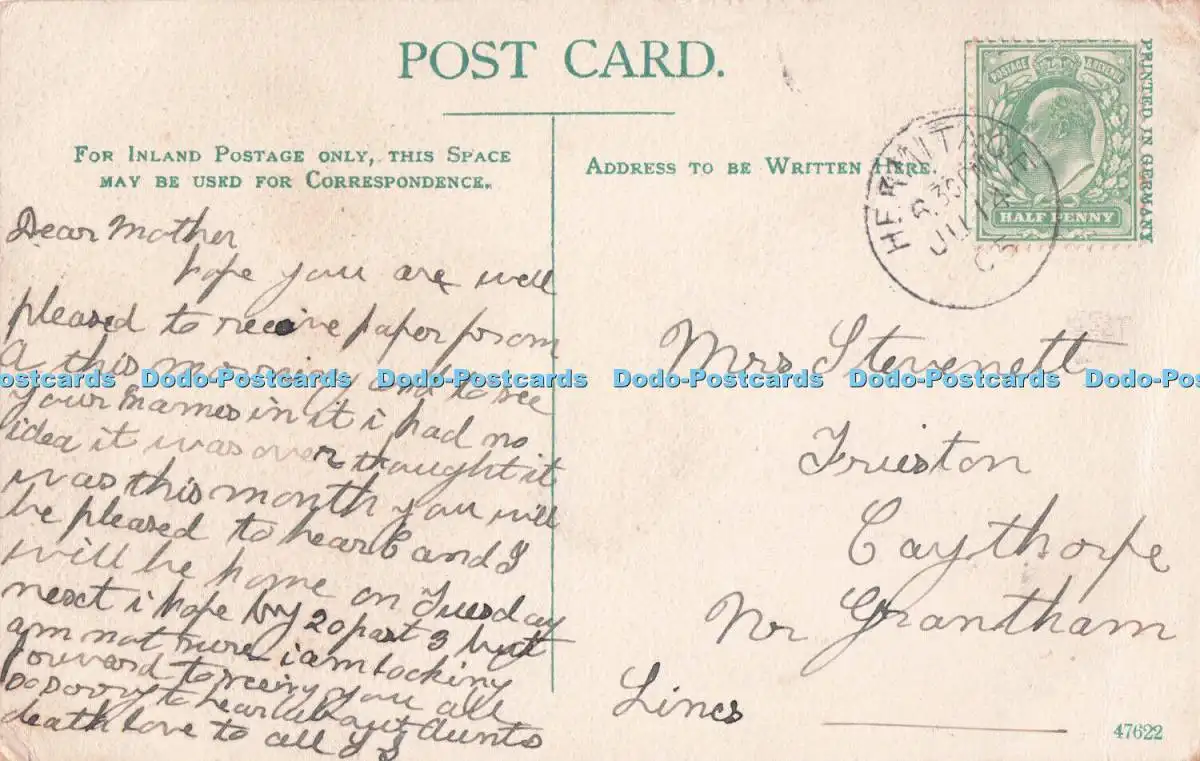 POST CARD.
FOR INLAND POSTAGE ONLY, THIS SPACE
MAY BE USED FOR CORRESPONDENCE.
Dear Mother
hope you are well
pleased to receive paper from
A this morning and to see
your names in it i had no
idea it was over thought it
was this month you will
be pleased to hear C and I
will be home on Tuesday
next i hope by 20 past 3 but
am not sure i am looking
forward to seeing you all
so sorry to hear about Aunts
death love to all
ADDRESS TO BE WRITTEN HERE.
POSTAGE & REVENUE
HALF PENNY
PRINTED IN GERMANY
HERNITHORPE
30 PM
JU 14
05
Mrs Stevenett
Frieston
Caythorpe
Nr Grantham
Lincs
47622
Dodo-Postcards Dodo-Postcards Dodo-Postcards Dodo-Postcards Dodo-Postcards Dodo-Postcards